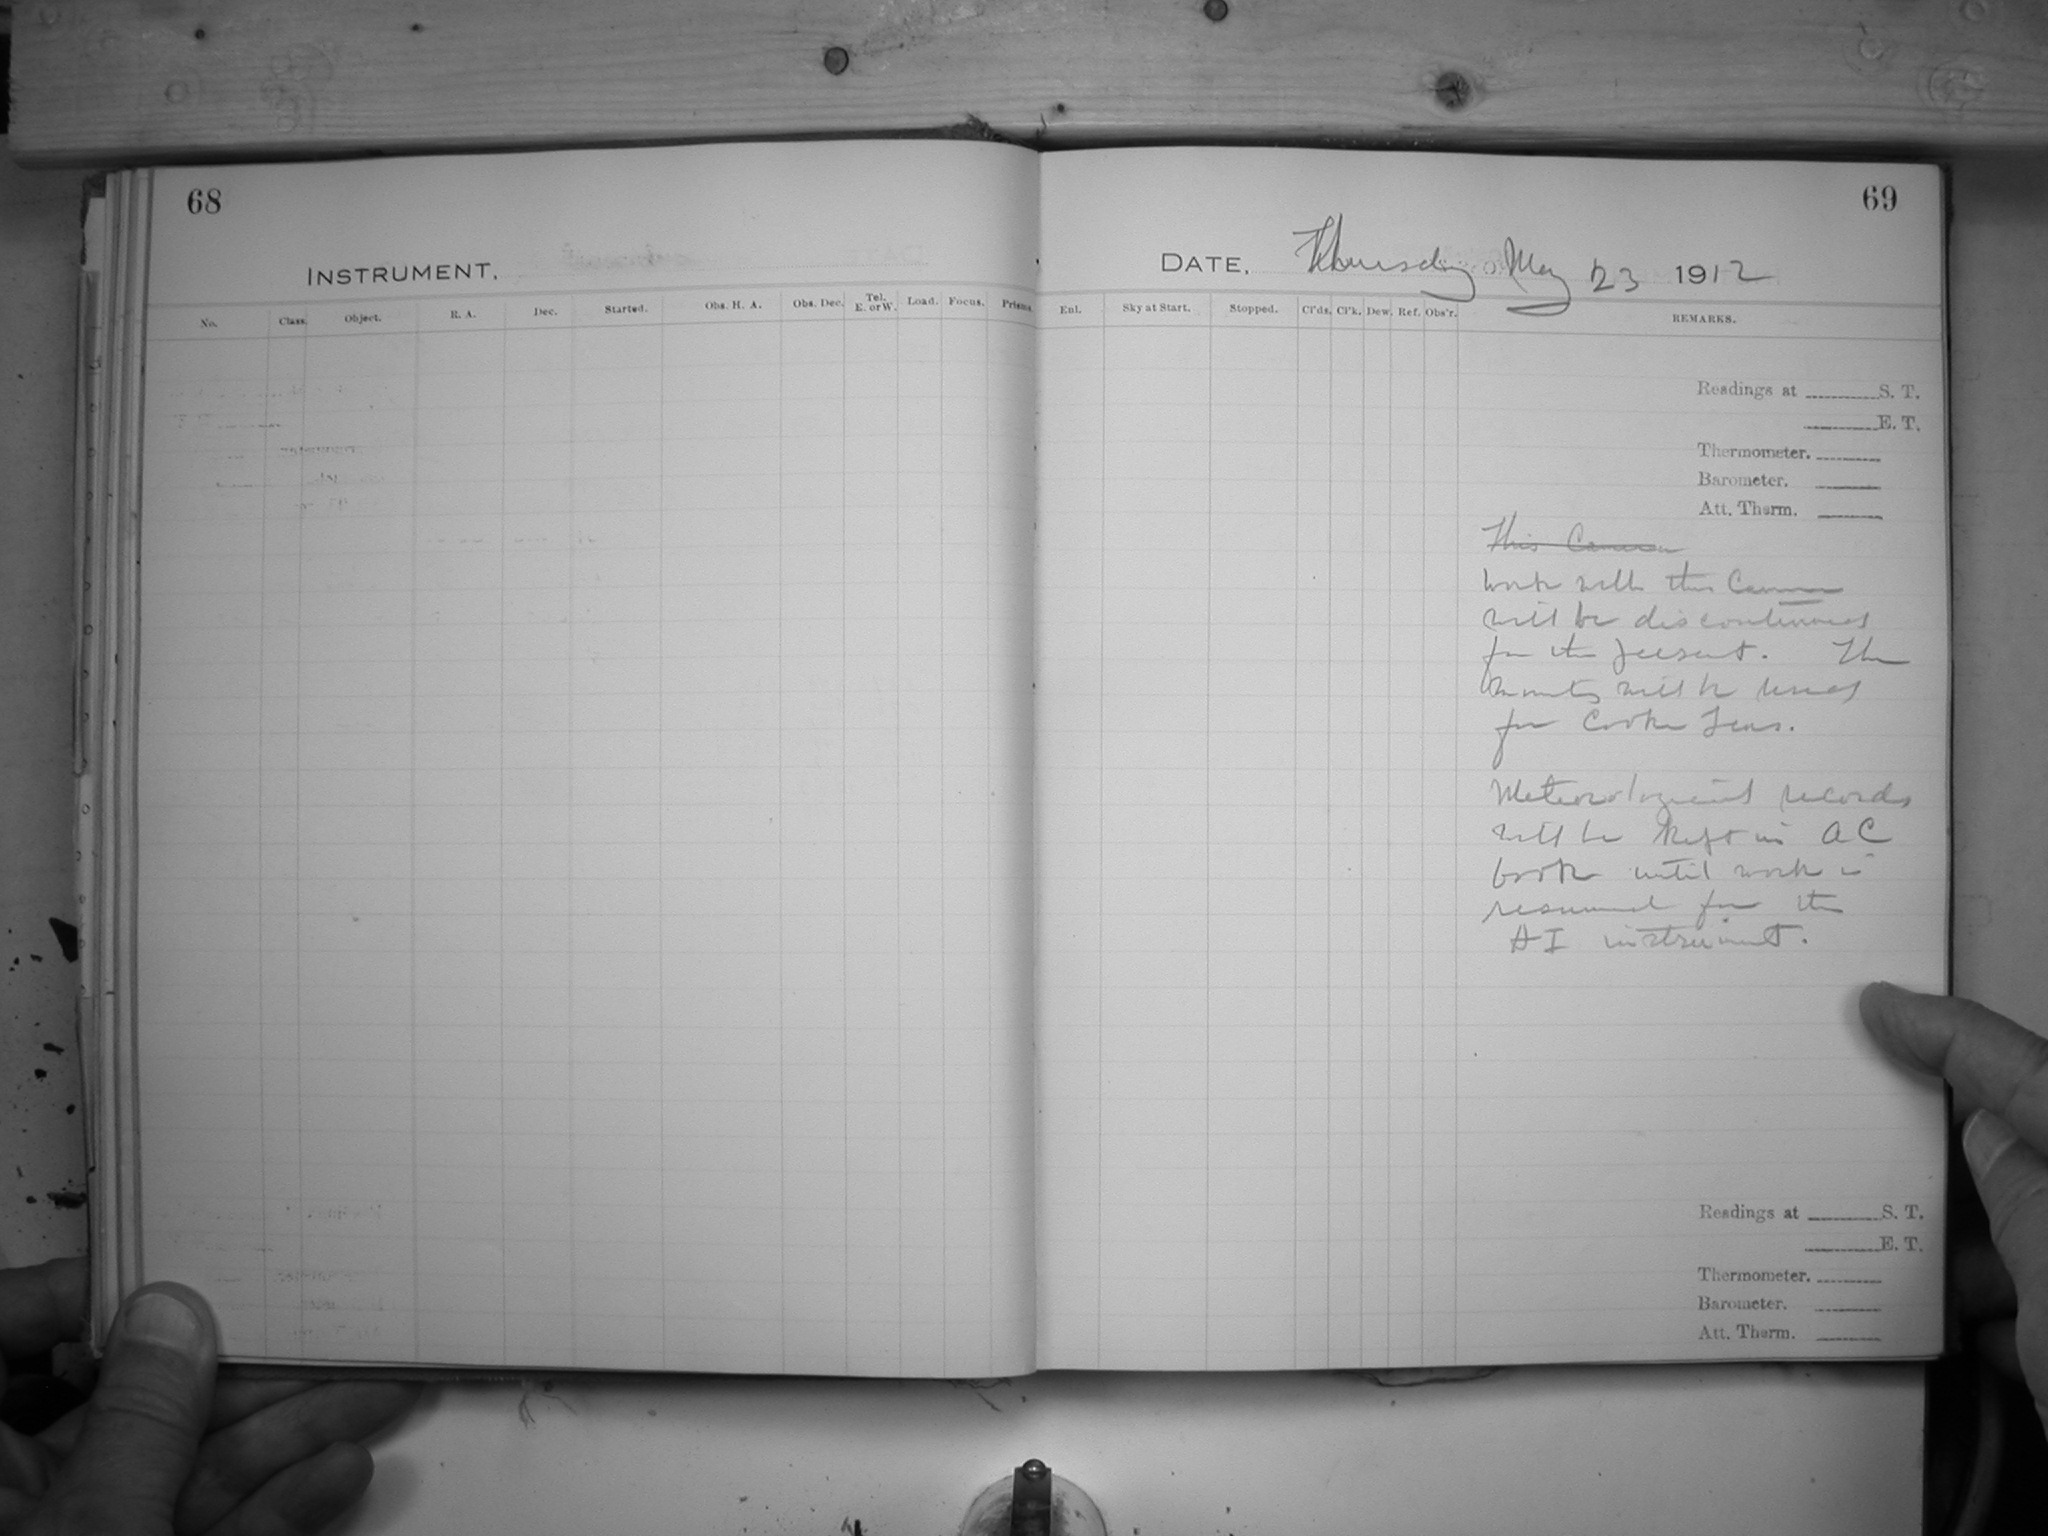 68
INSTRUMENT,
No. Class. Object. R. A. Dec. Started. Obs. H. A. Obs. Dec. Tel. E. or W. Load. Focus. Prisms.
69
DATE, Thursday May 23 1912
Enl. Sky at Start. Stopped. Cl'ds. Cl'k. Dew. Ref. Obs'r. REMARKS.
Readings at S. T.
E. T.
Thermometer.
Barometer.
Att. Therm.
This Camera
Work with this Camera
will be discontinued
for the present. The
mounting will be used
for Cooke Lens.
Meteorological records
will be kept in AC
book until work is
resumed for the
AI instrument.
Readings at S. T.
E. T.
Thermometer.
Barometer.
Att. Therm.